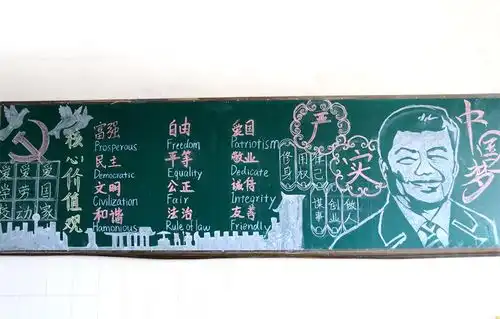 核心价值观
爱国家
爱劳动
爱学
富强 自由 爱国
Prosperous Freedom Patriotism
民主 平等 敬业
Democratic Equality Dedicate
文明 公正 诚信
Civilization Fair Integrity
和谐 法治 友善
Hamonious Rule of law Friendly
严
修身
用权
律己
实
谋事
创业
做人
中国梦